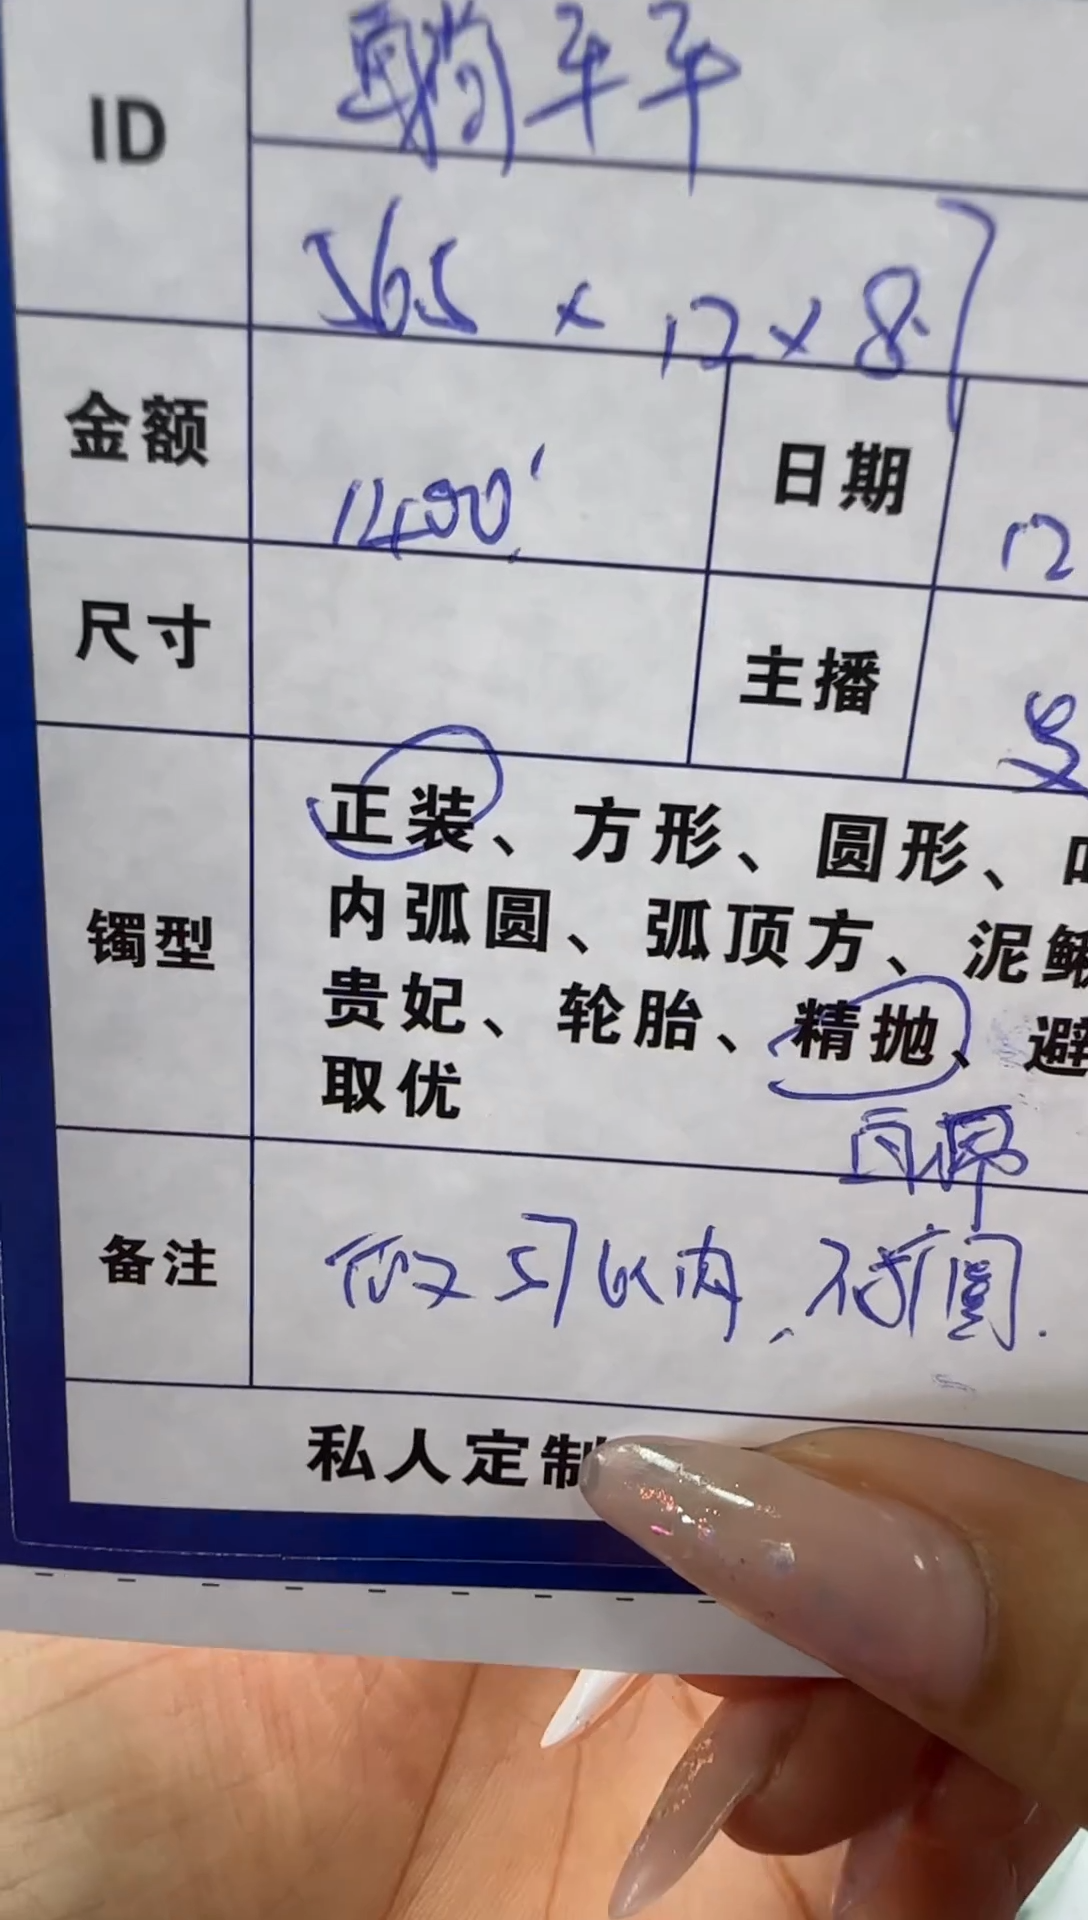 ID
平平
56.5 × 12 × 8.
金额
1400
日期
12
尺寸
主播
镯型
正装、方形、圆形、
内弧圆、弧顶方、泥鳅
贵妃、轮胎、精抛、避
取优
自佩
备注
57以内、不扩圆.
私人定制